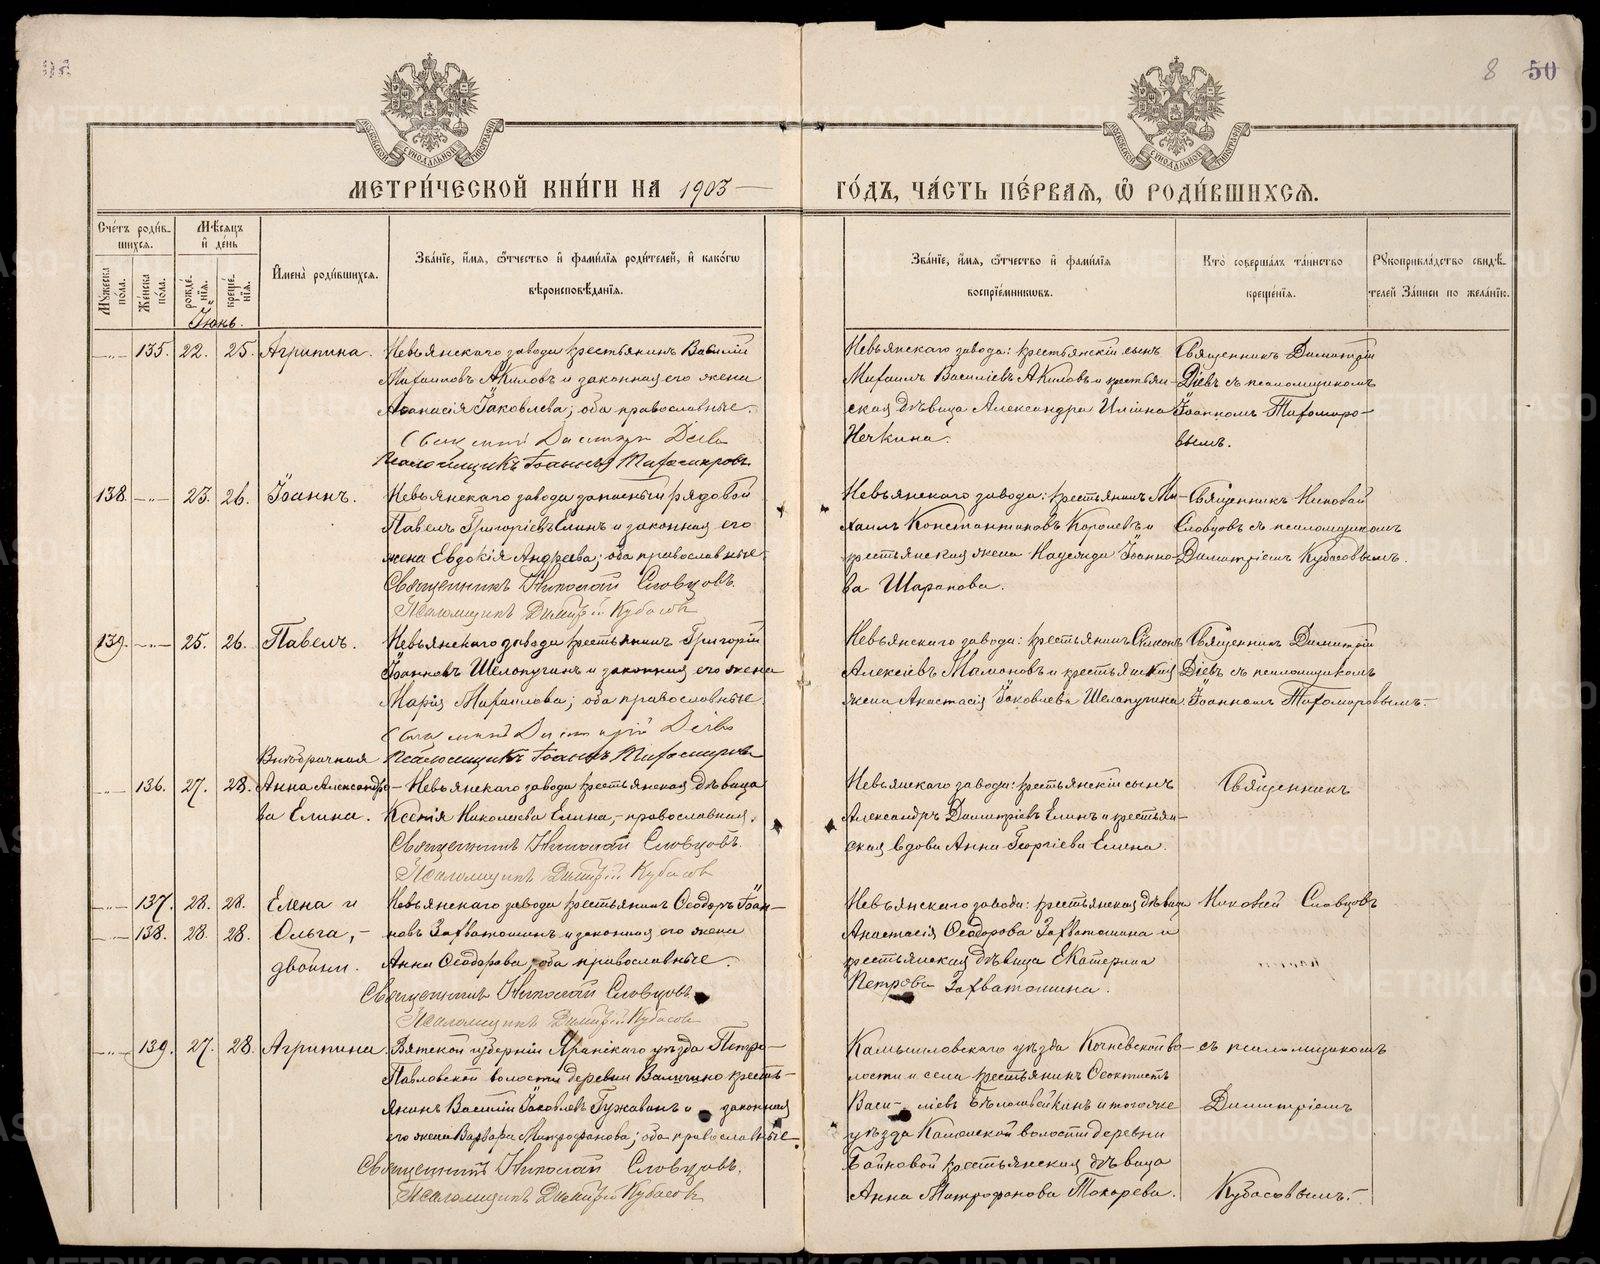 8 50
МОСКОВСКОЙ СѴНОДАЛЬНОЙ ТИПОГРАФІИ
МОСКОВСКОЙ СѴНОДАЛЬНОЙ ТИПОГРАФІИ
МЕТРИ́ЧЕСКОЙ КНИ́ГИ НА 1903 — ГО́ДЪ, ЧА́СТЬ ПЕ́РВАЯ, Ѽ РОДИ́ВШИХСЯ.
Сче́тъ роди́в-
шихся.
Мꙋжеска по́ла.
Же́нска по́ла.
Мѣ́сяцъ
и҆ де́нь
рожде́-нїѧ.
креще́-нїѧ.
И҆мена̀ роди́вшихся.
Зва́нїе, и҆́мя, ѻ҆́тчество и҆ фами́лїя роди́телей, и҆ како́гѡ
вѣроисповѣ́данїя.
Зва́нїе, и҆́мя, ѻ҆́тчество и҆ фами́лїя
воспрїе́мникѡвъ.
Кто̀ соверша́лъ та́инство
креще́нїя.
Рꙋкоприкла́дство свидѣ́-
телей за́писи по жела́нїю.
Іюнь.
135. 22. 25. Агрипина. Невьянскаго завода крестьянинъ Василій
Михаиловъ Акиловъ и законная его жена
Аѳанасія Іаковлева; оба православные.
Псаломщикъ Іоаннъ Тихомировъ
Невьянскаго завода: крестьянскій сынъ
Михаилъ Василіевъ Акиловъ и крестьян-
ская дѣвица Александра Иліина
Нечкина.
Священникъ Димитрій
Діевъ съ псаломщикомъ
Іоанномъ Тихомиро-
вымъ.
138. 23. 26. Іоаннъ. Невьянскаго завода запасный рядовой
Павелъ Григоріевъ Елинъ и законная его
жена Евдокія Андреева; оба православные.
Священникъ Николай Словцовъ.
Псаломщикъ Димитрій Кубасовъ
Невьянскаго завода: крестьянинъ Ми-
хаилъ Константиновъ Королевъ и
крестьянская жена Надежда Іоанно-
ва Шарапова.
Священникъ Николай
Словцовъ съ псаломщикомъ
Димитріемъ Кубасовымъ.
139. 25. 26. Павелъ. Невьянскаго завода крестьянинъ Григорій
Іоанновъ Шелопугинъ и законная его жена
Марія Михаилова; оба православные.
Псаломщикъ Іоаннъ Тихомировъ
Невьянскаго завода: крестьянинъ Симеонъ
Алексіевъ Мамоновъ и крестьянская
жена Анастасія Іаковлева Шелопугина.
Священникъ Димитрій
Діевъ съ псаломщикомъ
Іоанномъ Тихомировымъ.
Внѣбрачная
136. 27. 28. Анна Александро-
ва Елина.
Невьянскаго завода крестьянская дѣвица
Ксенія Николаева Елина, православная.
Священникъ Николай Словцовъ.
Псаломщикъ Димитрій Кубасовъ
Невьянскаго завода: крестьянскій сынъ
Александръ Димитріевъ Елинъ и крестьян-
ская вдова Анна Георгіева Елина.
Священникъ
137. 28. 28. Елена и
138. 28. 28. Ольга, -
двойни.
Невьянскаго завода крестьянинъ Ѳеодоръ Іоан-
новъ Захватошинъ и законная его жена
Анна Ѳеодорова; оба православные.
Священникъ Николай Словцовъ.
Псаломщикъ Димитрій Кубасовъ
Невьянскаго завода: крестьянская дѣвица
Анастасія Ѳеодорова Захватошина и
крестьянская дѣвица Екатерина
Петрова Захватошина.
Николай Словцовъ
139. 27. 28. Агрипина. Вятской губерніи Яранскаго уѣзда Петро-
Павловской волости деревни крестья-
янинъ Василій Іаковлевъ и законная
его жена Варвара Митрофанова; оба православные.
Священникъ Николай Словцовъ.
Псаломщикъ Димитрій Кубасовъ
Камышловскаго уѣзда Кочневской во-
лости и села крестьянинъ Ѳеоктистъ
Васи-ліевъ и того же
уѣзда Каменской волости деревни
Байновой крестьянская дѣвица
Анна Митрофанова Токарева.
съ псаломщикомъ
Димитріемъ
Кубасовымъ.
METRIKI.GASO-URAL.RU